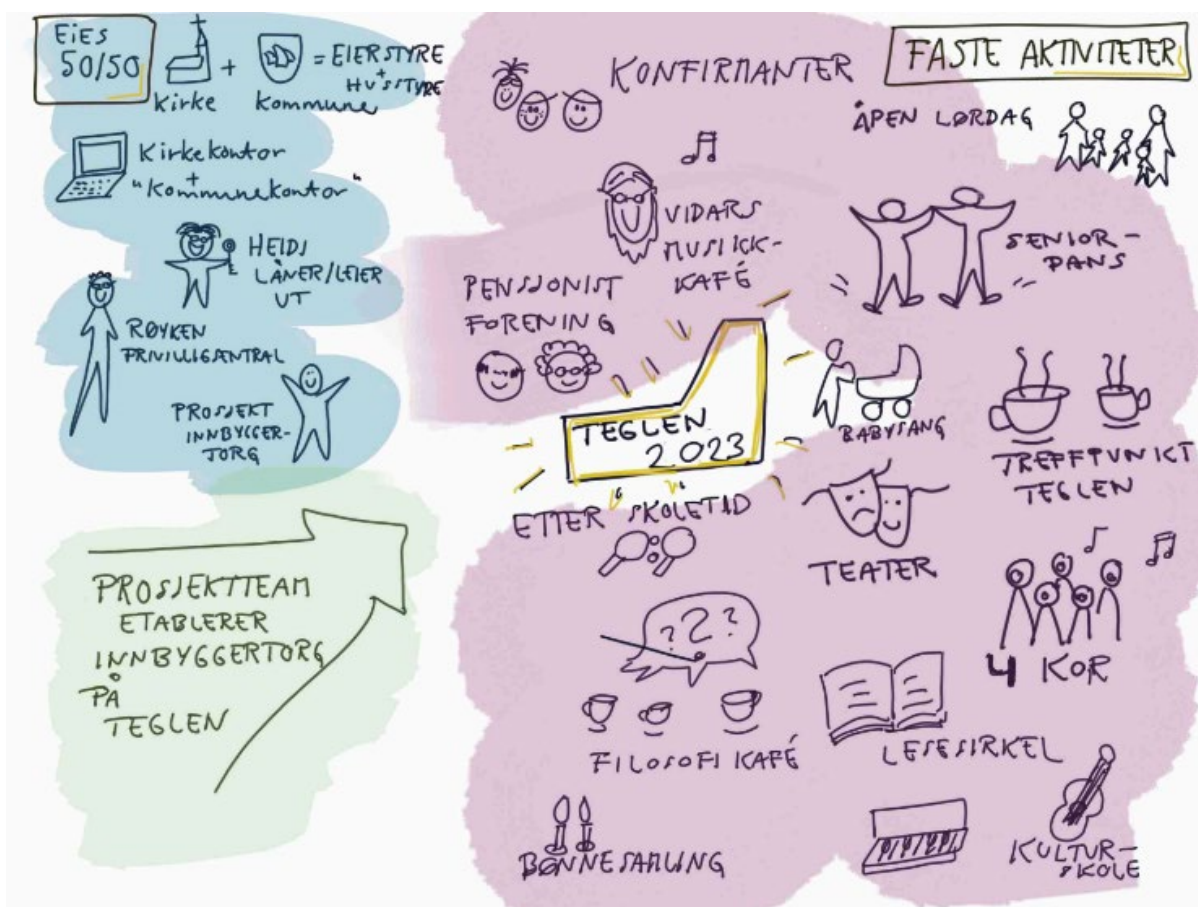 EiES
50/50
+
= EIERSTYRE
+
HUSSTYRE
Kirke
Kommune
Kirkekontor
+
"Kommunekontor"
HEIDI
LÅNER/LEIER
UT
RØYKEN
FRIVILLIGSENTRAL
PROSJEKT
INNBYGGER-
TORG
PROSJEKTTEAM
ETABLERER
INNBYGGERTORG
PÅ
TEGLEN
FASTE AKTIVITETER
KONFIRMANTER
ÅPEN LØRDAG
VIDARS
MUSIKK-
KAFÉ
SENIOR-
DANS
PENSJONIST
FORENING
TEGLEN
2023
BABYSANG
TREFFPUNKT
TEGLEN
ETTER SKOLETID
TEATER
4 KOR
? ? ?
FILOSOFI KAFÉ
LESESIRKEL
BØNNESAMLING
KULTUR-
SKOLE